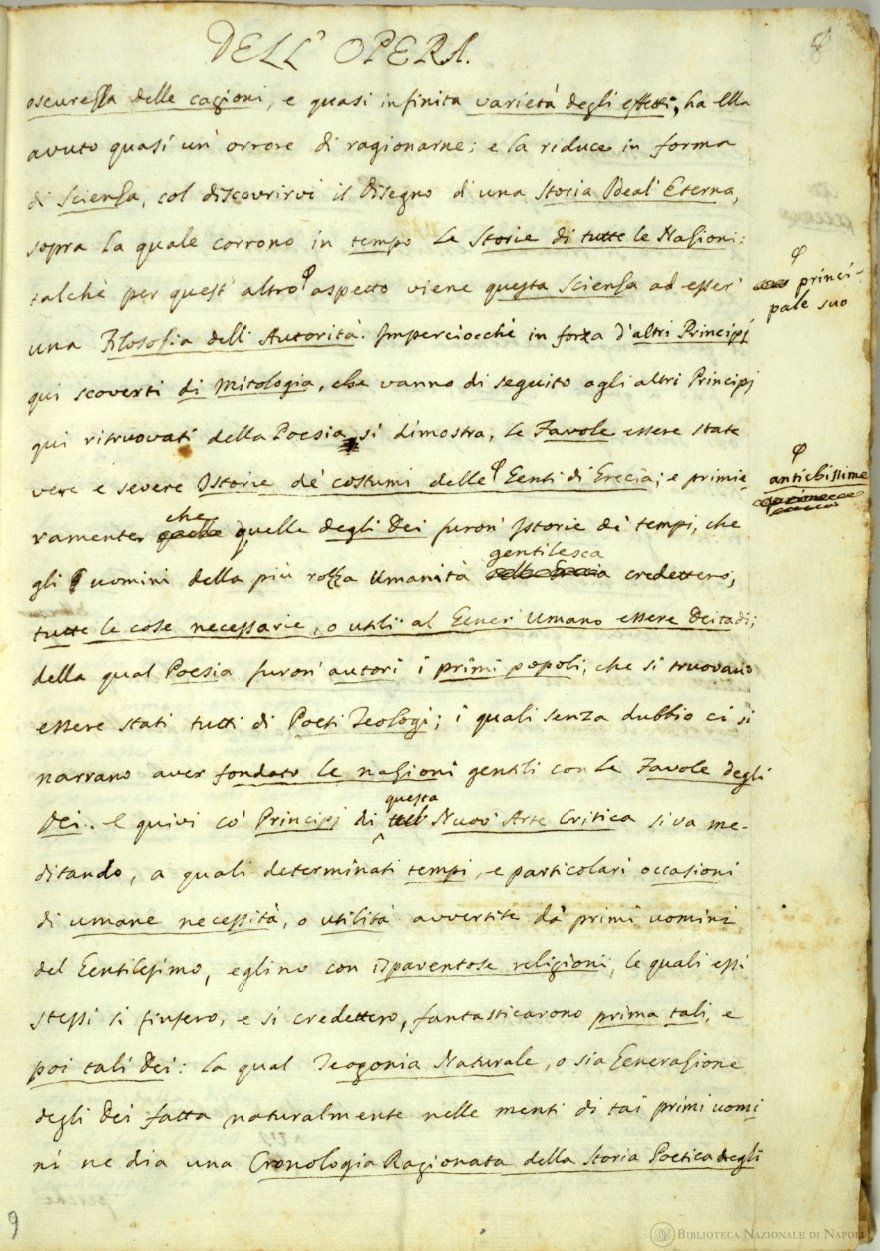 DELL' OPERA.
8
oscurezza delle cagioni, e quasi infinita varietà degli effetti, ha ella
avuto quasi un' orrore di ragionarne; e la riduce in forma
di Scienza, col discovrirvi il disegno d' una Storia Ideal' Eterna,
sopra la quale corrono in tempo le Storie di tutte le Nazioni:
talchè per quest' altro φ aspecto viene questa Scienza ad esser'
φ princi-
pale suo
una Filosofia dell' Autorità. Imperciocchè in forza d' altri Principj
qui scoverti di Mitologia, che vanno di seguito agli altri Principj
qui ritruovati della Poesia si dimostra, le Favole essere state
vere e severe Istorie de' costumi delle φ Genti di Grecia; e primie-
φ
antichissime
ramente, che quelle degli Dei furon' Istorie de' tempi, che
gli uomini della più rozza Umanità gentilesca credettero,
tutte le cose necessarie, o utili al Gener' Umano essere Deitadi;
della qual Poesia furon' autori i primi popoli, che si truovano
essere stati tutti di Poeti Teologi; i quali senza dubbio ci si
narrano aver fondato le nazioni gentili con le Favole degli
Dei. e quivi co' Principj di questa Nuov' Arte Critica si va me-
ditando, a quali determinati tempi, e particolari occasioni
di umane necessità, o utilità avvertite da' primi uomini
del Gentilesimo, eglino con ispaventose religioni, le quali essi
stessi si finsero, e si credettero, fantasticarono prima tali, e
poi tali Dei: la qual Teogonia Naturale, o sia Generazione
degli Dei fatta naturalmente nelle menti di tai primi uomi
ni ne dia una Cronologia Ragionata della Storia Poetica degli
9
BIBLIOTECA NAZIONALE DI NAPOLI